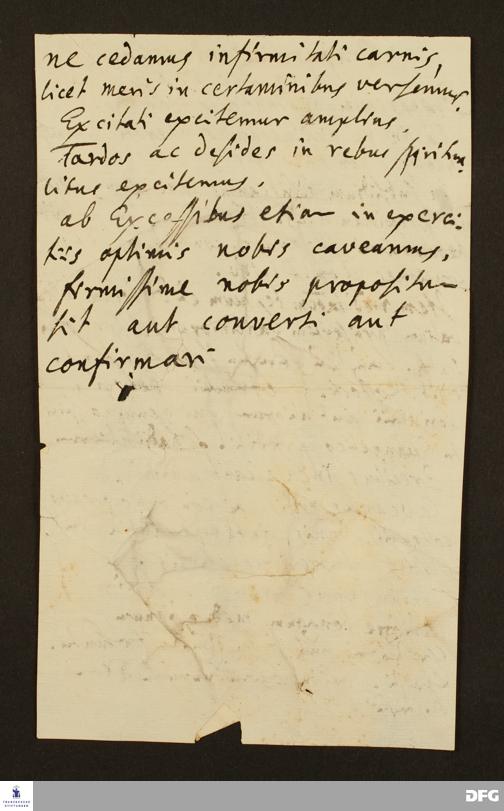 ne cedamus infirmitati carnis,
licet meris in certaminibus versemur.
Excitati excitemur amplius,
Tardos ac desides in rebus spiritua-
litus excitemus.
ab Excessibus etiam in exerci-
tiis optimis nobis caveamus,
firmissime nobis propositum
sit aut converti aut
confirmari
FRANCKESCHE
STIFTUNGEN
DFG